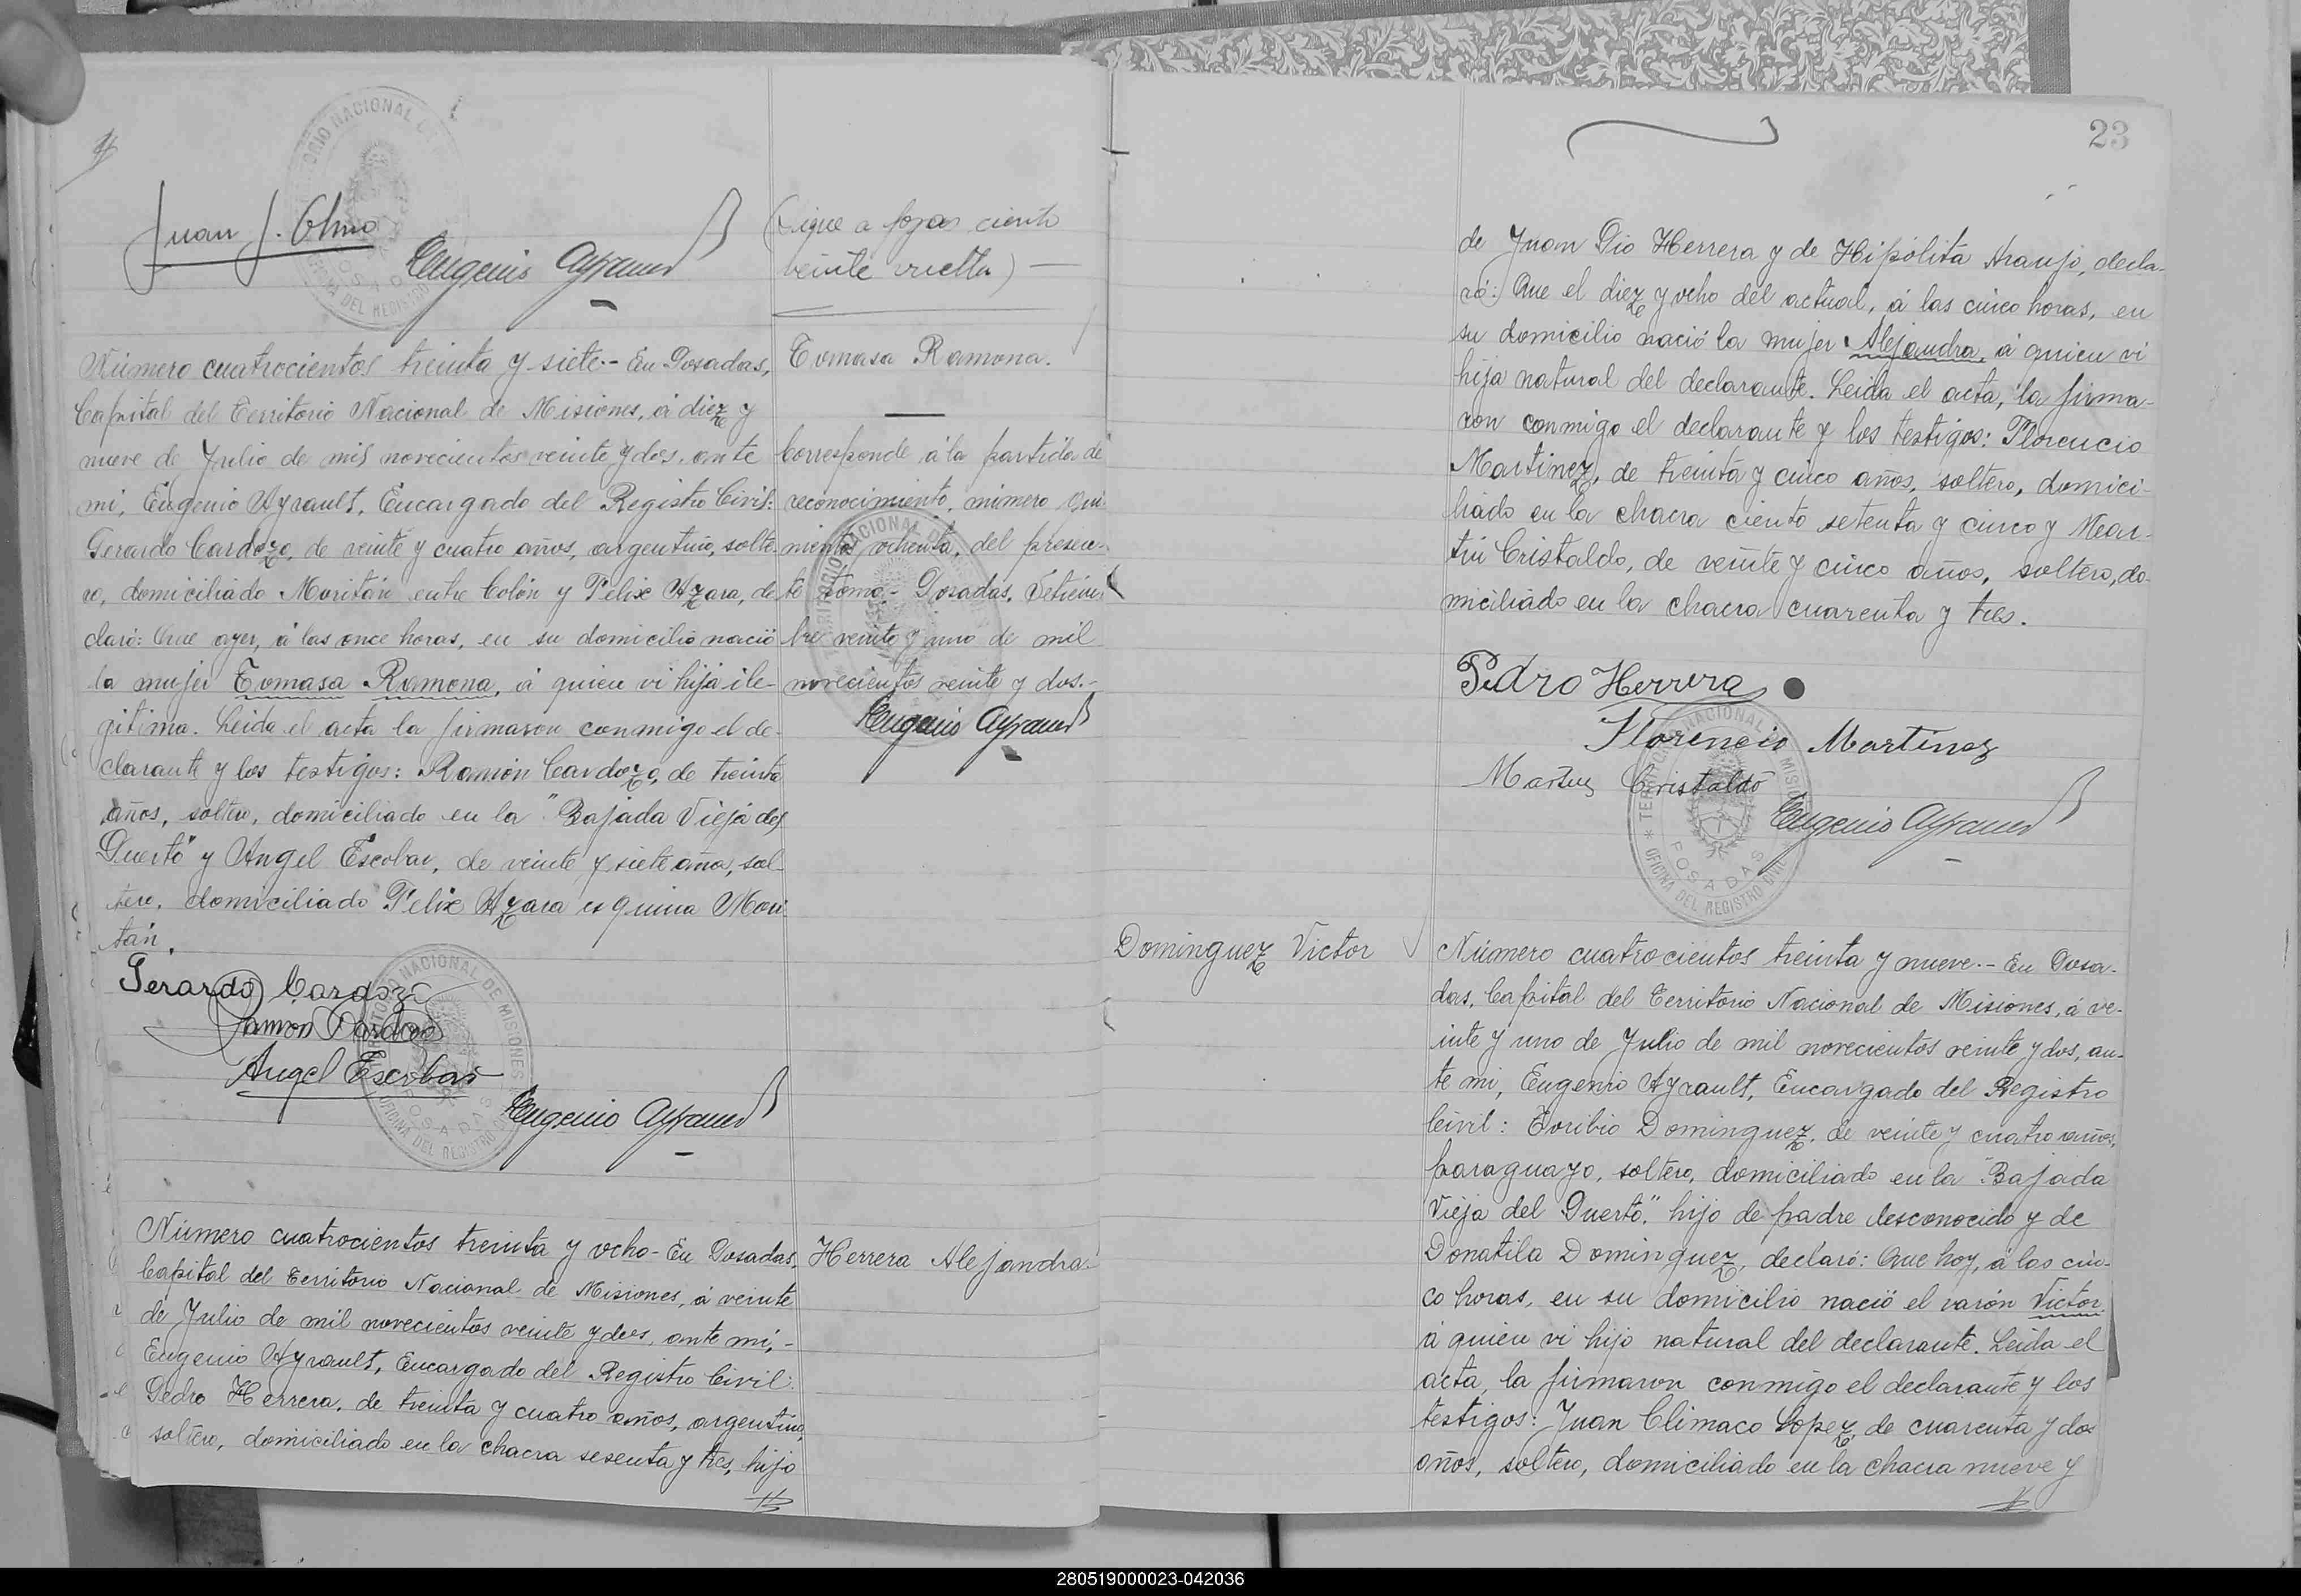 Juan J. Olmo
Eugenio Ayrault
(Sigue a fojas ciento
veinte vuelta)
Número cuatrocientos treinta y siete.- En Posadas,
Capital del Territorio Nacional de Misiones, á diez y
nueve de Julio de mil novecientos veinte y dos, ante
mi, Eugenio Ayrault, Encargado del Registro Civil:
Gerardo Cardozo, de veinte y cuatro años, argentino, solte-
ro, domiciliado Moritán entre Colón y Felix Azara, de
claró: Que ayer, á las once horas, en su domicilio nació
la mujer Tomasa Ramona, á quien vi hija ile-
gitima. Leida el acta la firmaron conmigo el de-
clarante y los testigos: Ramón Cardozo, de treinta
años, soltero, domiciliado en la "Bajada Vieja del
Puerto" y Angel Escobar, de veinte y siete años, sol-
tero, domiciliado Felix Azara esquina Mori
tán.
Tomasa Ramona.
Corresponde á la partida de
reconocimiento, número qui-
nientos ochenta, del presen-
te tomo.- Posadas, Setiem-
bre veinte y uno de mil
novecientos veinte y dos.-
Eugenio Ayrault
Gerardo Cardozo
Ramon Cardozo
Angel Escobar
Eugenio Ayrault
Número cuatrocientos treinta y ocho- En Posadas,
Capital del Territorio Nacional de Misiones, á veinte
de Julio de mil novecientos veinte y dos, ante mi,-
Eugenio Ayrault, Encargado del Registro Civil:
Pedro Herrera, de treinta y cuatro años, argentino,
soltero, domiciliado en la chacra sesenta y tres, hijo
Herrera Alejandra.
23
de Juan Pio Herrera y de Hipólita Araujo, decla-
ró: Que el diez y ocho del actual, á las cinco horas, en
su domicilio nació la mujer Alejandra, á quien vi
hija natural del declarante. Leida el acta, la firma-
ron conmigo el declarante y los testigos: Florencio
Martinez, de treinta y cinco años, soltero, domici-
liado en la chacra ciento setenta y cinco y Mar-
tin Cristaldo, de veinte y cinco años, soltero, do-
miciliado en la chacra cuarenta y tres.
Pedro Herrera
Florencio Martinez
Martin Cristaldo
Eugenio Ayrault
TERRITORIO NACIONAL DE MISIONES
POSADAS
OFICINA DEL REGISTRO CIVIL
Dominguez Victor
Número cuatrocientos treinta y nueve.- En Posa-
das, Capital del Territorio Nacional de Misiones, á ve-
inte y uno de Julio de mil novecientos veinte y dos, an-
te mi, Eugenio Ayrault, Encargado del Registro
Civil: Toribio Dominguez, de veinte y cuatro años,
paraguayo, soltero, domiciliado en la "Bajada
Vieja del Puerto," hijo de padre desconocido y de
Donatila Dominguez, declaró: Que hoy, á las cin-
co horas, en su domicilio nació el varón Victor,
á quien vi hijo natural del declarante. Leida el
acta, la firmaron conmigo el declarante y los
testigos: Juan Climaco Lopez, de cuarenta y dos
años, soltero, domiciliado en la chacra nueve y
280519000023-042036